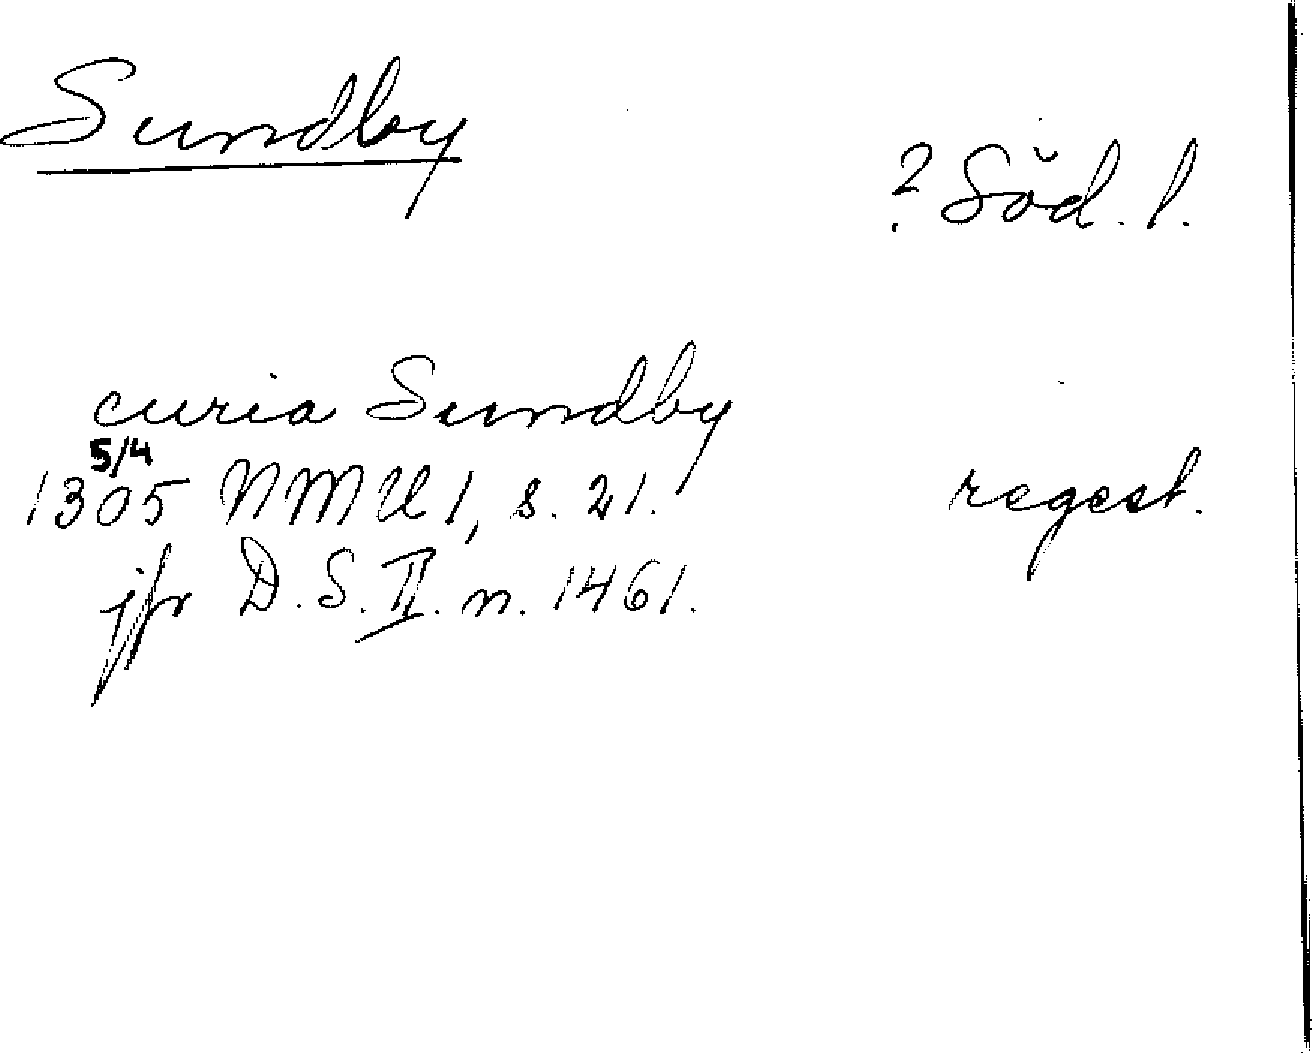 Sundby
? Söd. l.
curia Sundby
5/4
1305 NMU 1, s. 21. regest.
jfr D. S. II. n. 1461.